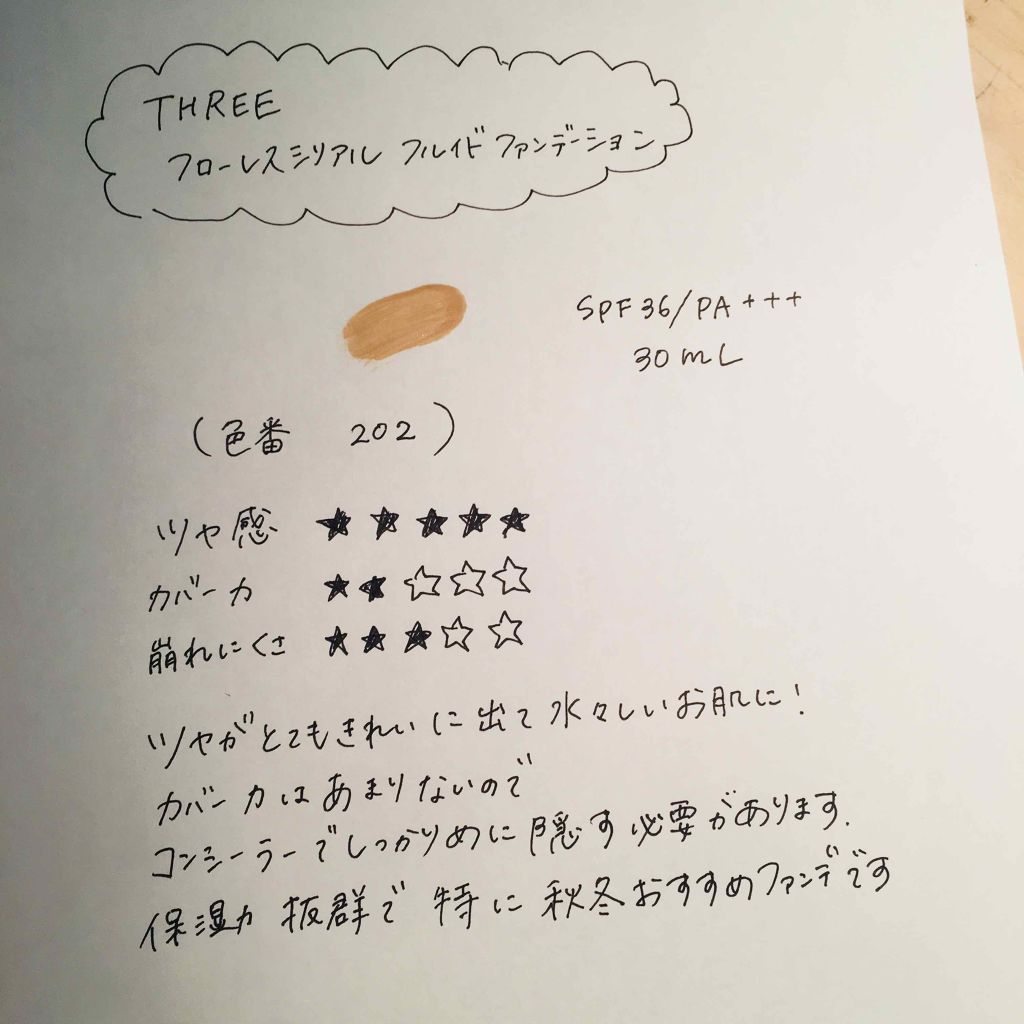 THREE
フローレスミリアル フルイドファンデーション
SPF36/PA+++
30mL
(色番 202)
ツヤ感 ★★★★★
カバー力 ★★☆☆☆
崩れにくさ ★★★☆☆
ツヤがとてもきれいに出て水々しいお肌に!
カバー力はあまりないので
コンシーラーでしっかりめに隠す必要があります.
保湿力 抜群で 特に 秋冬おすすめファンデです